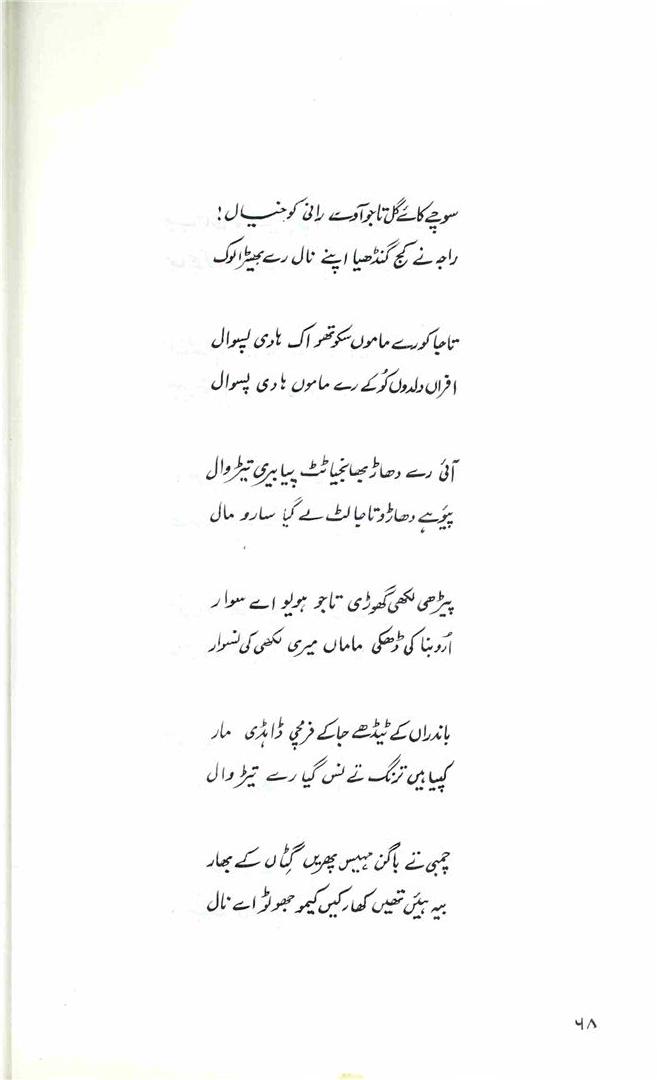 سوچے کائے گل تاجو آوے رانی کو خیال!
راجہ نے کج گنڈھیا اپنے نال رے بھیڑا لوک
تاجا کو رے ماموں سکو تھو اک ہادی لسپوال
افراں دلدوں کو کے رے ماموں ہادی پسوال
آئی رے دھاڑ بھانجیا ٹٹ پیا بیری تیڑوال
پیؤ ہے دھاڑو تاجا لٹ لے گیا سارو مال
پیڑھی لکھی گھوڑی تاجو ہولو اے سوار
اُرو بنا کی ڈھکی ماماں میری لکھی کی نسوار
باندراں کے ٹیڈھے جا کے فرمچی ڈاہڈی مار
کپیا ہیں تزنگ تے نس گیا رے تیڑوال
چمبی تے باگن مہیس پھریں گٹاں کے بھار
بیہ ہیئں تھیں کھار کیں کیمو جھولڑ اے نال
۶۸